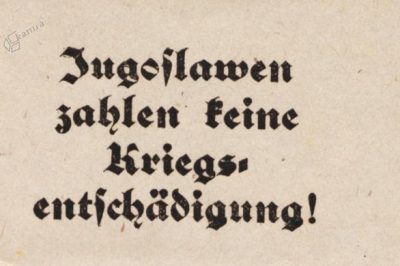 Jugoslawen
zahlen keine
Kriegs-
entschädigung!